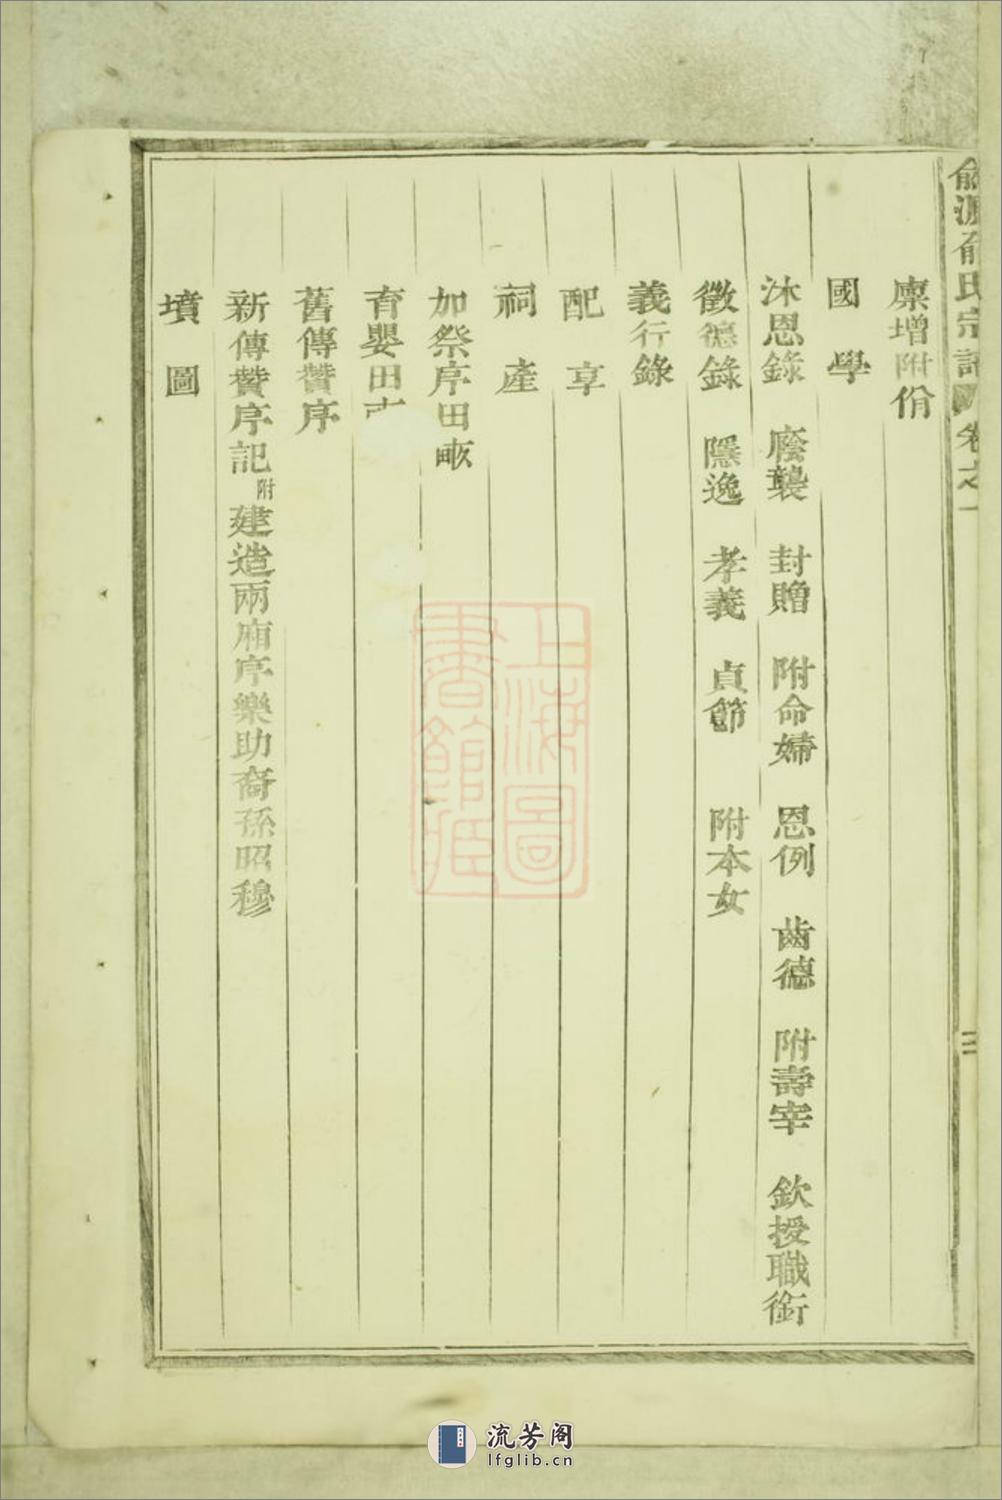 俞源俞氏宗譜 卷之一
二
廩增附佾
國學
沐恩錄 廕襲 封贈 附命婦 恩例 齒德 附壽宰 欽授職銜
徵德錄 隱逸 孝義 貞節 附本女
義行錄
配享
祠產
加祭序田畝
育嬰田
舊傳贊序
新傳贊序記附建造兩廂序樂助裔孫昭穆
墳圖
上海圖
書館藏
流芳阁
lfglib.cn